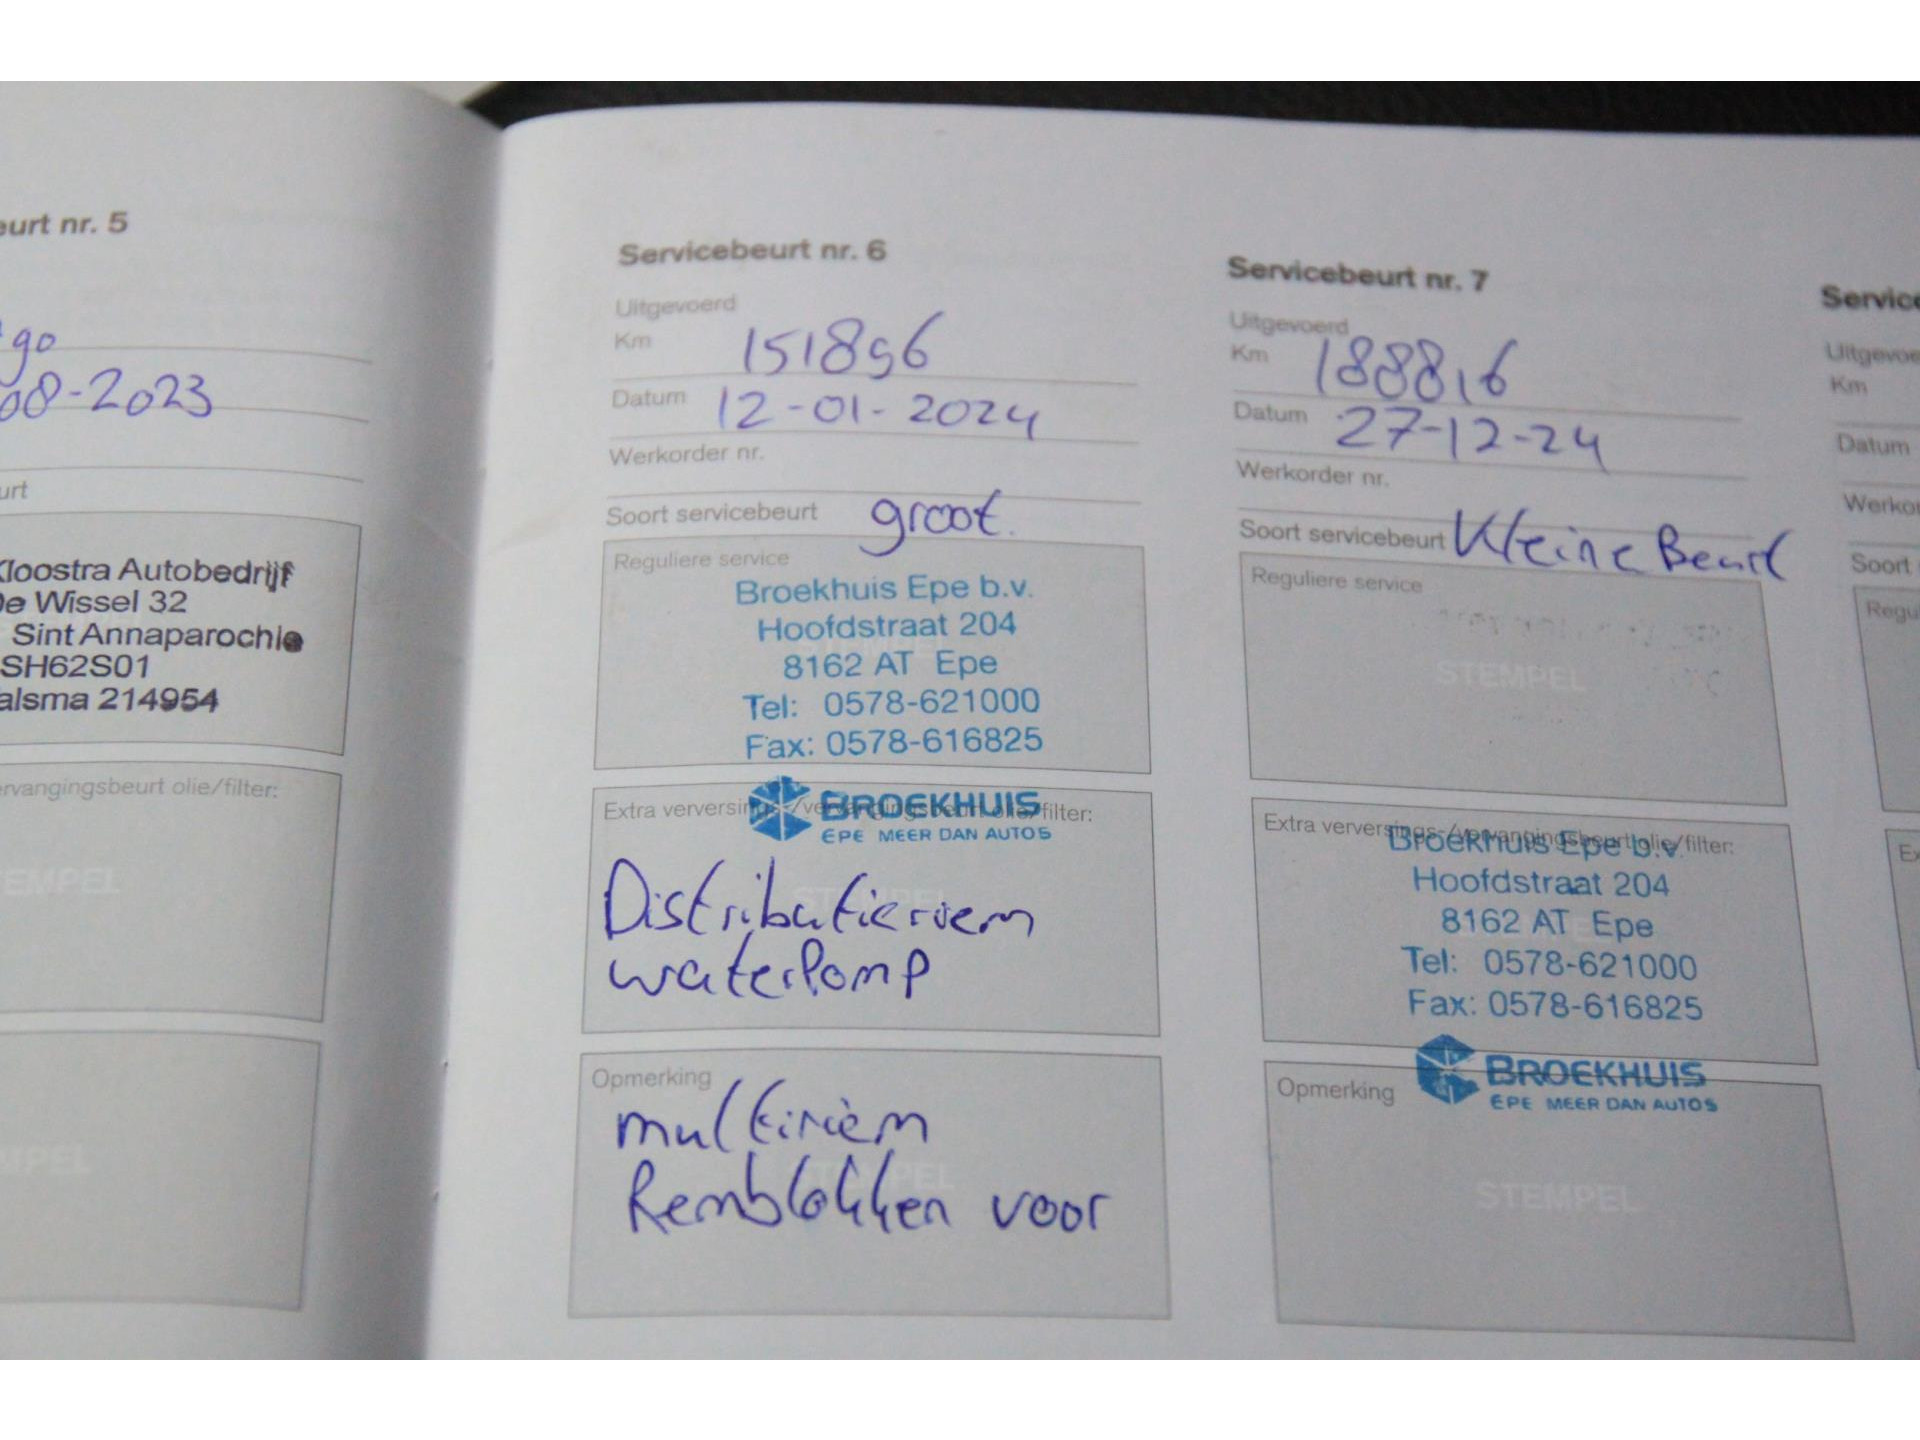 eurt nr. 5
go
08-2023
urt
Kloostra Autobedrijf
De Wissel 32
Sint Annaparochie
SH62S01
alsma 214954
ervangingsbeurt olie/filter:
STEMPEL
STEMPEL
Servicebeurt nr. 6
Uitgevoerd
Km 151896
Datum 12-01-2024
Werkorder nr.
Soort servicebeurt groot.
Reguliere service
Broekhuis Epe b.v.
Hoofdstraat 204
8162 AT Epe
Tel: 0578-621000
Fax: 0578-616825
BROEKHUIS
EPE MEER DAN AUTOS
Extra verversings-/vervangingsbeurt olie/filter:
STEMPEL
Distributieriem
waterpomp
Opmerking
STEMPEL
multiriem
Remblokken voor
Servicebeurt nr. 7
Uitgevoerd
Km 188816
Datum 27-12-24
Werkorder nr.
Soort servicebeurt Kleine Beurt
Reguliere service
STEMPEL
Extra verversings-/vervangingsbeurt olie/filter:
Broekhuis Epe b.v.
Hoofdstraat 204
8162 AT Epe
Tel: 0578-621000
Fax: 0578-616825
BROEKHUIS
EPE MEER DAN AUTOS
Opmerking
STEMPEL
Service
Uitgevoe
Km
Datum
Werkor
Soort
Regu
Ex